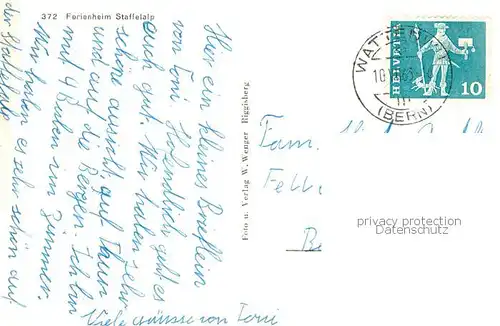 372 Ferienheim Staffelalp
Hier ein kleines Brieflein
von Toni. Hoffendlich geht es
euch gut. Wir haben sehr
schöne aussicht, auf Thun
und auf die Bergen. Ich bin
mit 4 Buben im Zimmer.
Wir haben es sehr schön auf
der Staffelalp
Viele grüsse von Toni
Foto u. Verlag W. Wenger Riggisberg
HELVETIA
10
WATTEN
(BERN)
Fam.
privacy protection
Datenschutz